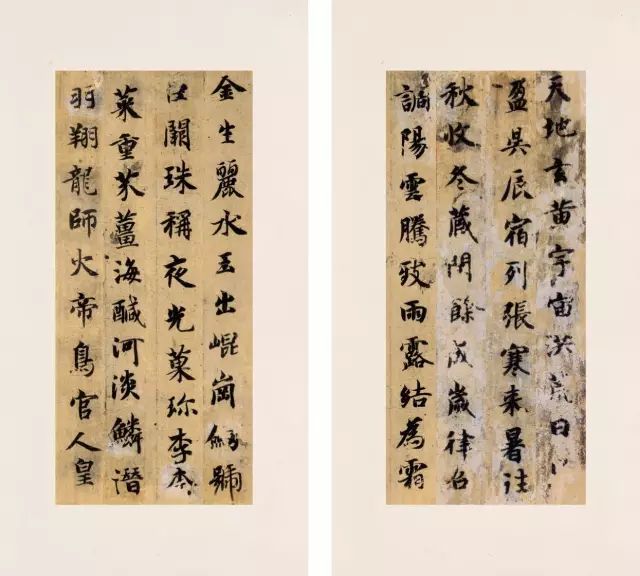 天地玄黄宇宙洪荒日
盈昃辰宿列張寒来暑往
秋收冬藏閏餘成歲律吕
調陽雲騰致雨露結為霜
金生麗水玉出崐崗劒號
巨闕珠稱夜光菓珎李柰
菜重芥薑海鹹河淡鱗潛
羽翔龍師火帝鳥官人皇